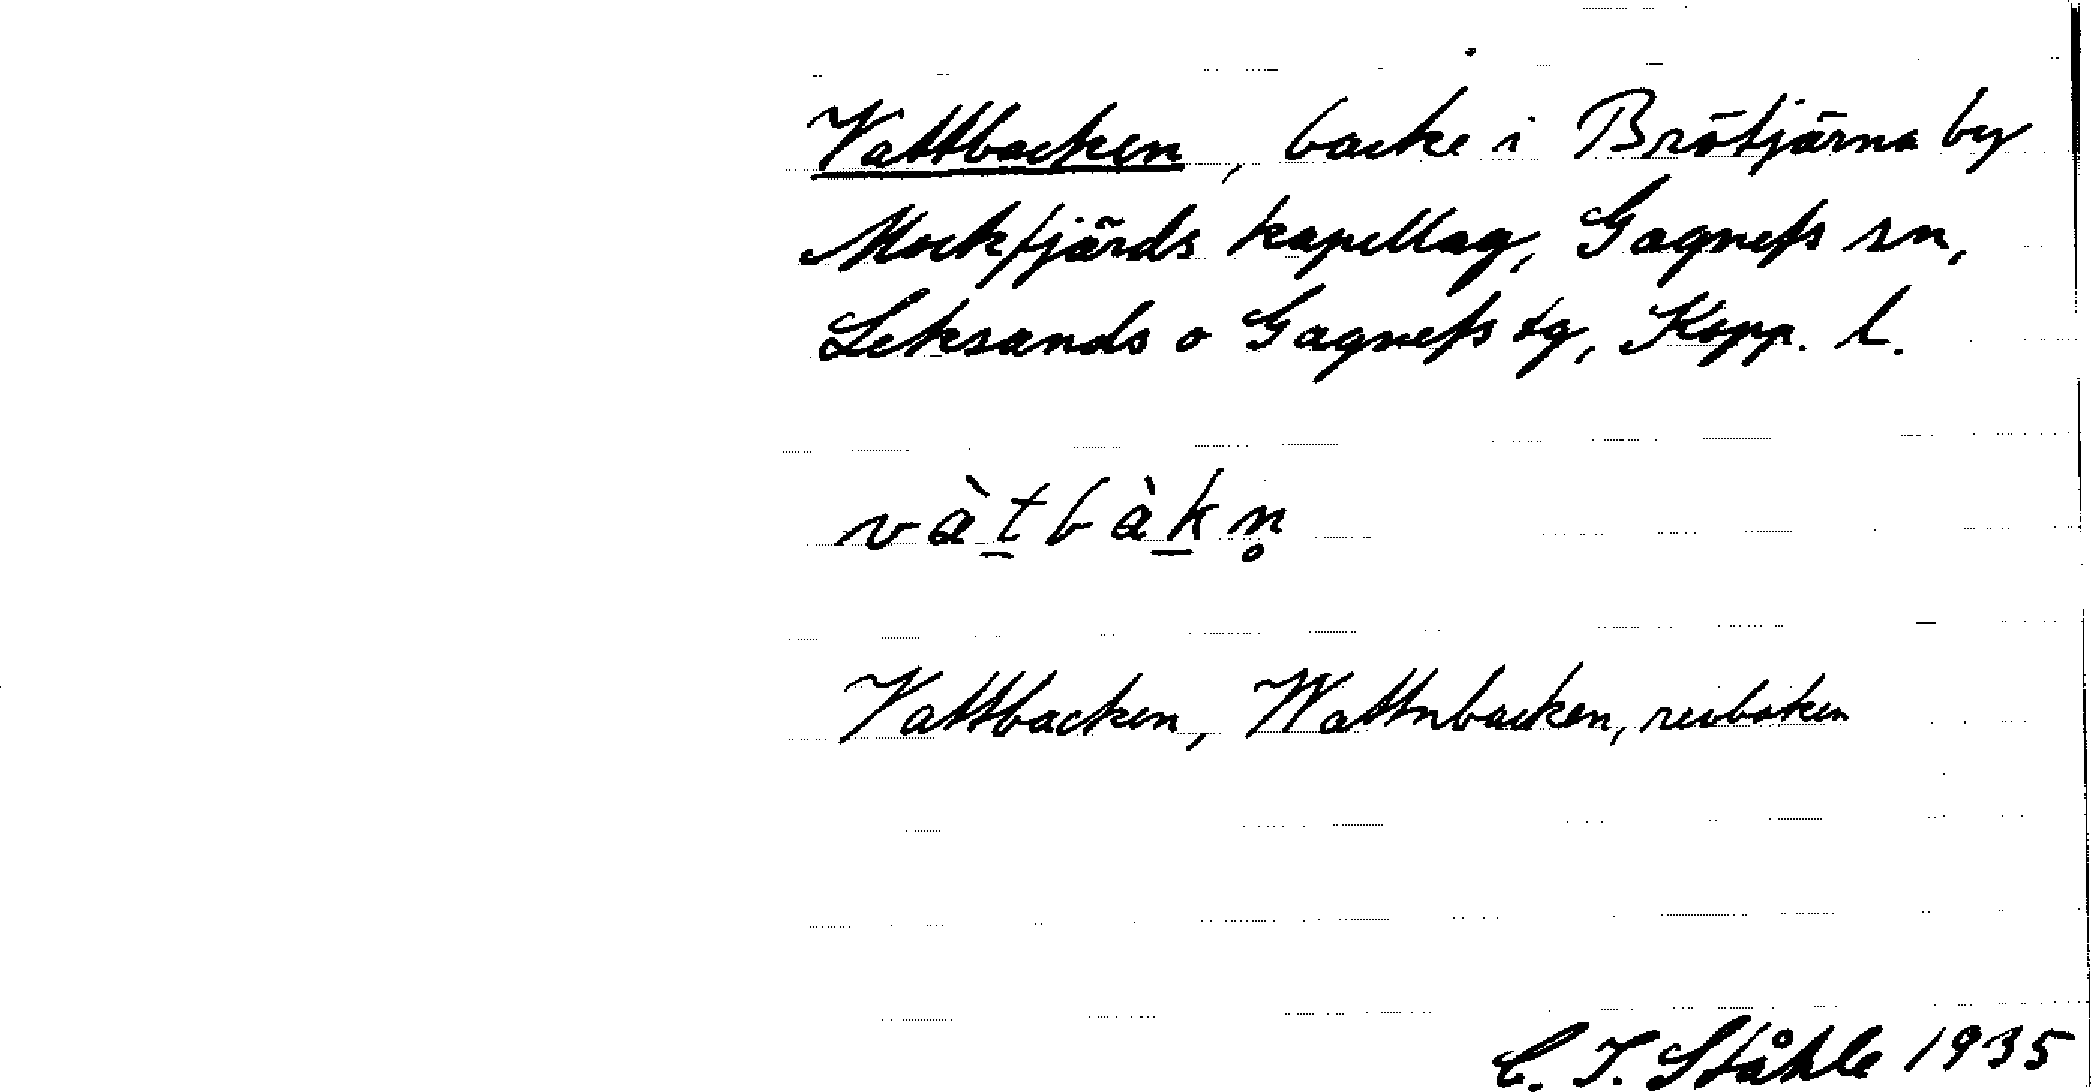 Vattbacken, backe i Brötjärna by
Mockfjärds kapellag, Gagnefs sn,
Leksands o Gagnefs tg, Kopp. l.
vàt̲bàk̲n̥
Vattbacken, Wattnbacken, revboken
C. I. Ståhle 1935